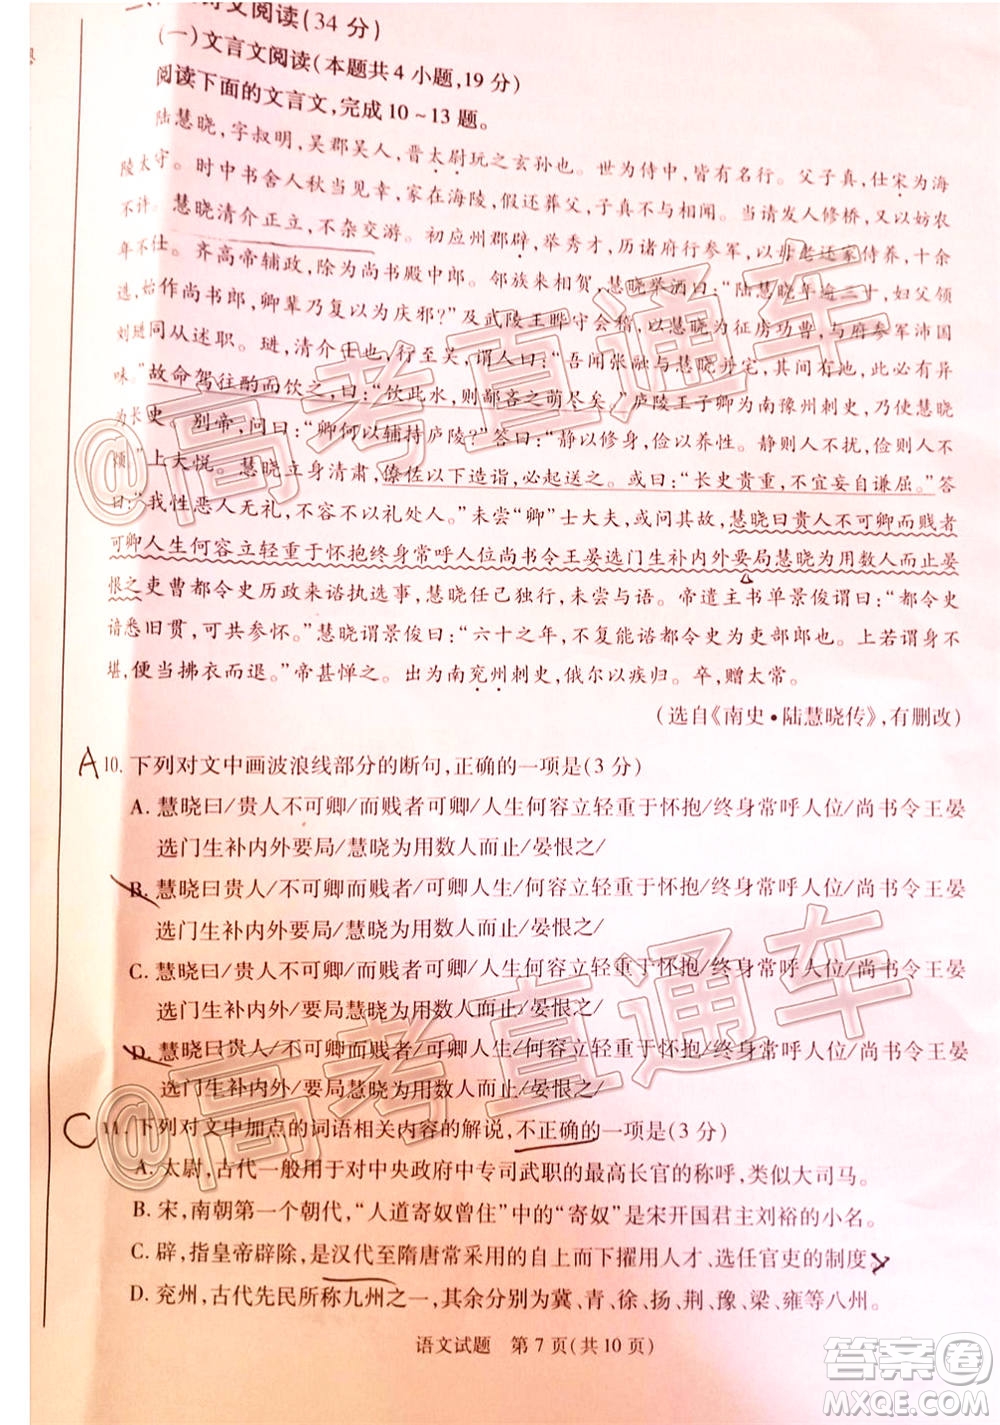 诗文阅读(34分)
(一)文言文阅读(本题共4小题,19分)
阅读下面的文言文,完成10~13题。
陆慧晓,字叔明,吴郡吴人,晋太尉玩之玄孙也。世为侍中,皆有名行。父子真,仕宋为海
陵太守。时中书舍人秋当见幸,家在海陵,假还葬父,子真不与相闻。当请发人修桥,又以妨农
不许。慧晓清介正立,不杂交游。初应州郡辟,举秀才,历诸府行参军,以母老还家侍养,十余
年不仕。齐高帝辅政,除为尚书殿中郎。邻族来相贺,慧晓举酒曰:“陆慧晓年逾三十,妇父领
选,始作尚书郎,卿辈乃复以为庆邪?”及武陵王晔守会稽,以慧晓为征虏功曹,与府参军沛国
刘琎同从述职。琎,清介士也,行至吴,谓人曰:“吾闻张融与慧晓并宅,其间有水,必应有异
味。”故命驾往酌而饮之,曰:“饮此水,则鄙吝之萌尽矣。”庐陵王子卿为南豫州刺史,
为长史。别帝,问曰:“卿何以辅持庐陵?”答曰:“静以修身,俭以养性。静则人不扰,俭则人不
烦。”上大悦。慧晓立身清肃,僚佐以下造诣,必起送之。或曰:“长史贵重,不宜妄自谦屈。”答
曰:“我性恶人无礼,不容不以礼处人。”未尝“卿”士大夫,或问其故,慧晓曰贵人不可卿而贱者
可卿人生何容立轻重于怀抱终身常呼人位尚书令王晏选门生补内外要局慧晓为用数人而止晏
恨之吏曹都令史历政来谘执选事,慧晓任已独行,未尝与语。帝遣主书单景俊谓曰:“都令史
谙悉旧贯,可共参怀。”慧晓谓景俊曰:“六十之年,不复能谘都令史为吏部郎也。上若谓身不
堪,便当拂衣而退。”帝甚惮之。出为南兖州刺史,俄以疾归。卒,赠太常。
(选自《南史·陆慧晓传》,有删改)
A 10. 下列对文中画波浪线部分的断句,正确的一项是(3分)
A. 慧晓曰/贵人不可卿/而贱者可卿/人生何容立轻重于怀抱/终身常呼人位/尚书令王晏
选门生补内外要局/慧晓为用数人而止/晏恨之/
B. 慧晓曰贵人/不可卿而贱者/可卿人生/何容立轻重于怀抱/终身常呼人位/尚书令王晏
选门生补内外要局/慧晓为用数人而止/晏恨之/
C. 慧晓曰/贵人不可卿/而贱者可卿/人生何容立轻重于怀抱/终身常呼人位/尚书令王晏
选门生补内外/要局慧晓为用数人而止/晏恨之/
D. 慧晓曰贵人/不可卿而贱者/可卿人生/何容立轻重于怀抱/终身常呼人位/尚书令王晏
选门生补内外/要局慧晓为用数人而止/晏恨之/
C 11. 下列对文中加点的词语相关内容的解说,不正确的一项是(3分)
A. 太尉,古代一般用于对中央政府中专司武职的最高长官的称呼,类似大司马。
B. 宋,南朝第一个朝代,“人道寄奴曾住”中的“寄奴”是宋开国君主刘裕的小名。
C. 辟,指皇帝辟除,是汉代至隋唐常采用的自上而下擢用人才、选任官吏的制度。
D. 兖州,古代先民所称九州之一,其余分别为冀、青、徐、扬、荆、豫、梁、雍等八州。
语文试题 第7页(共10页)
@高考直通车
@高考直通车
答案圈
MXQE.COM